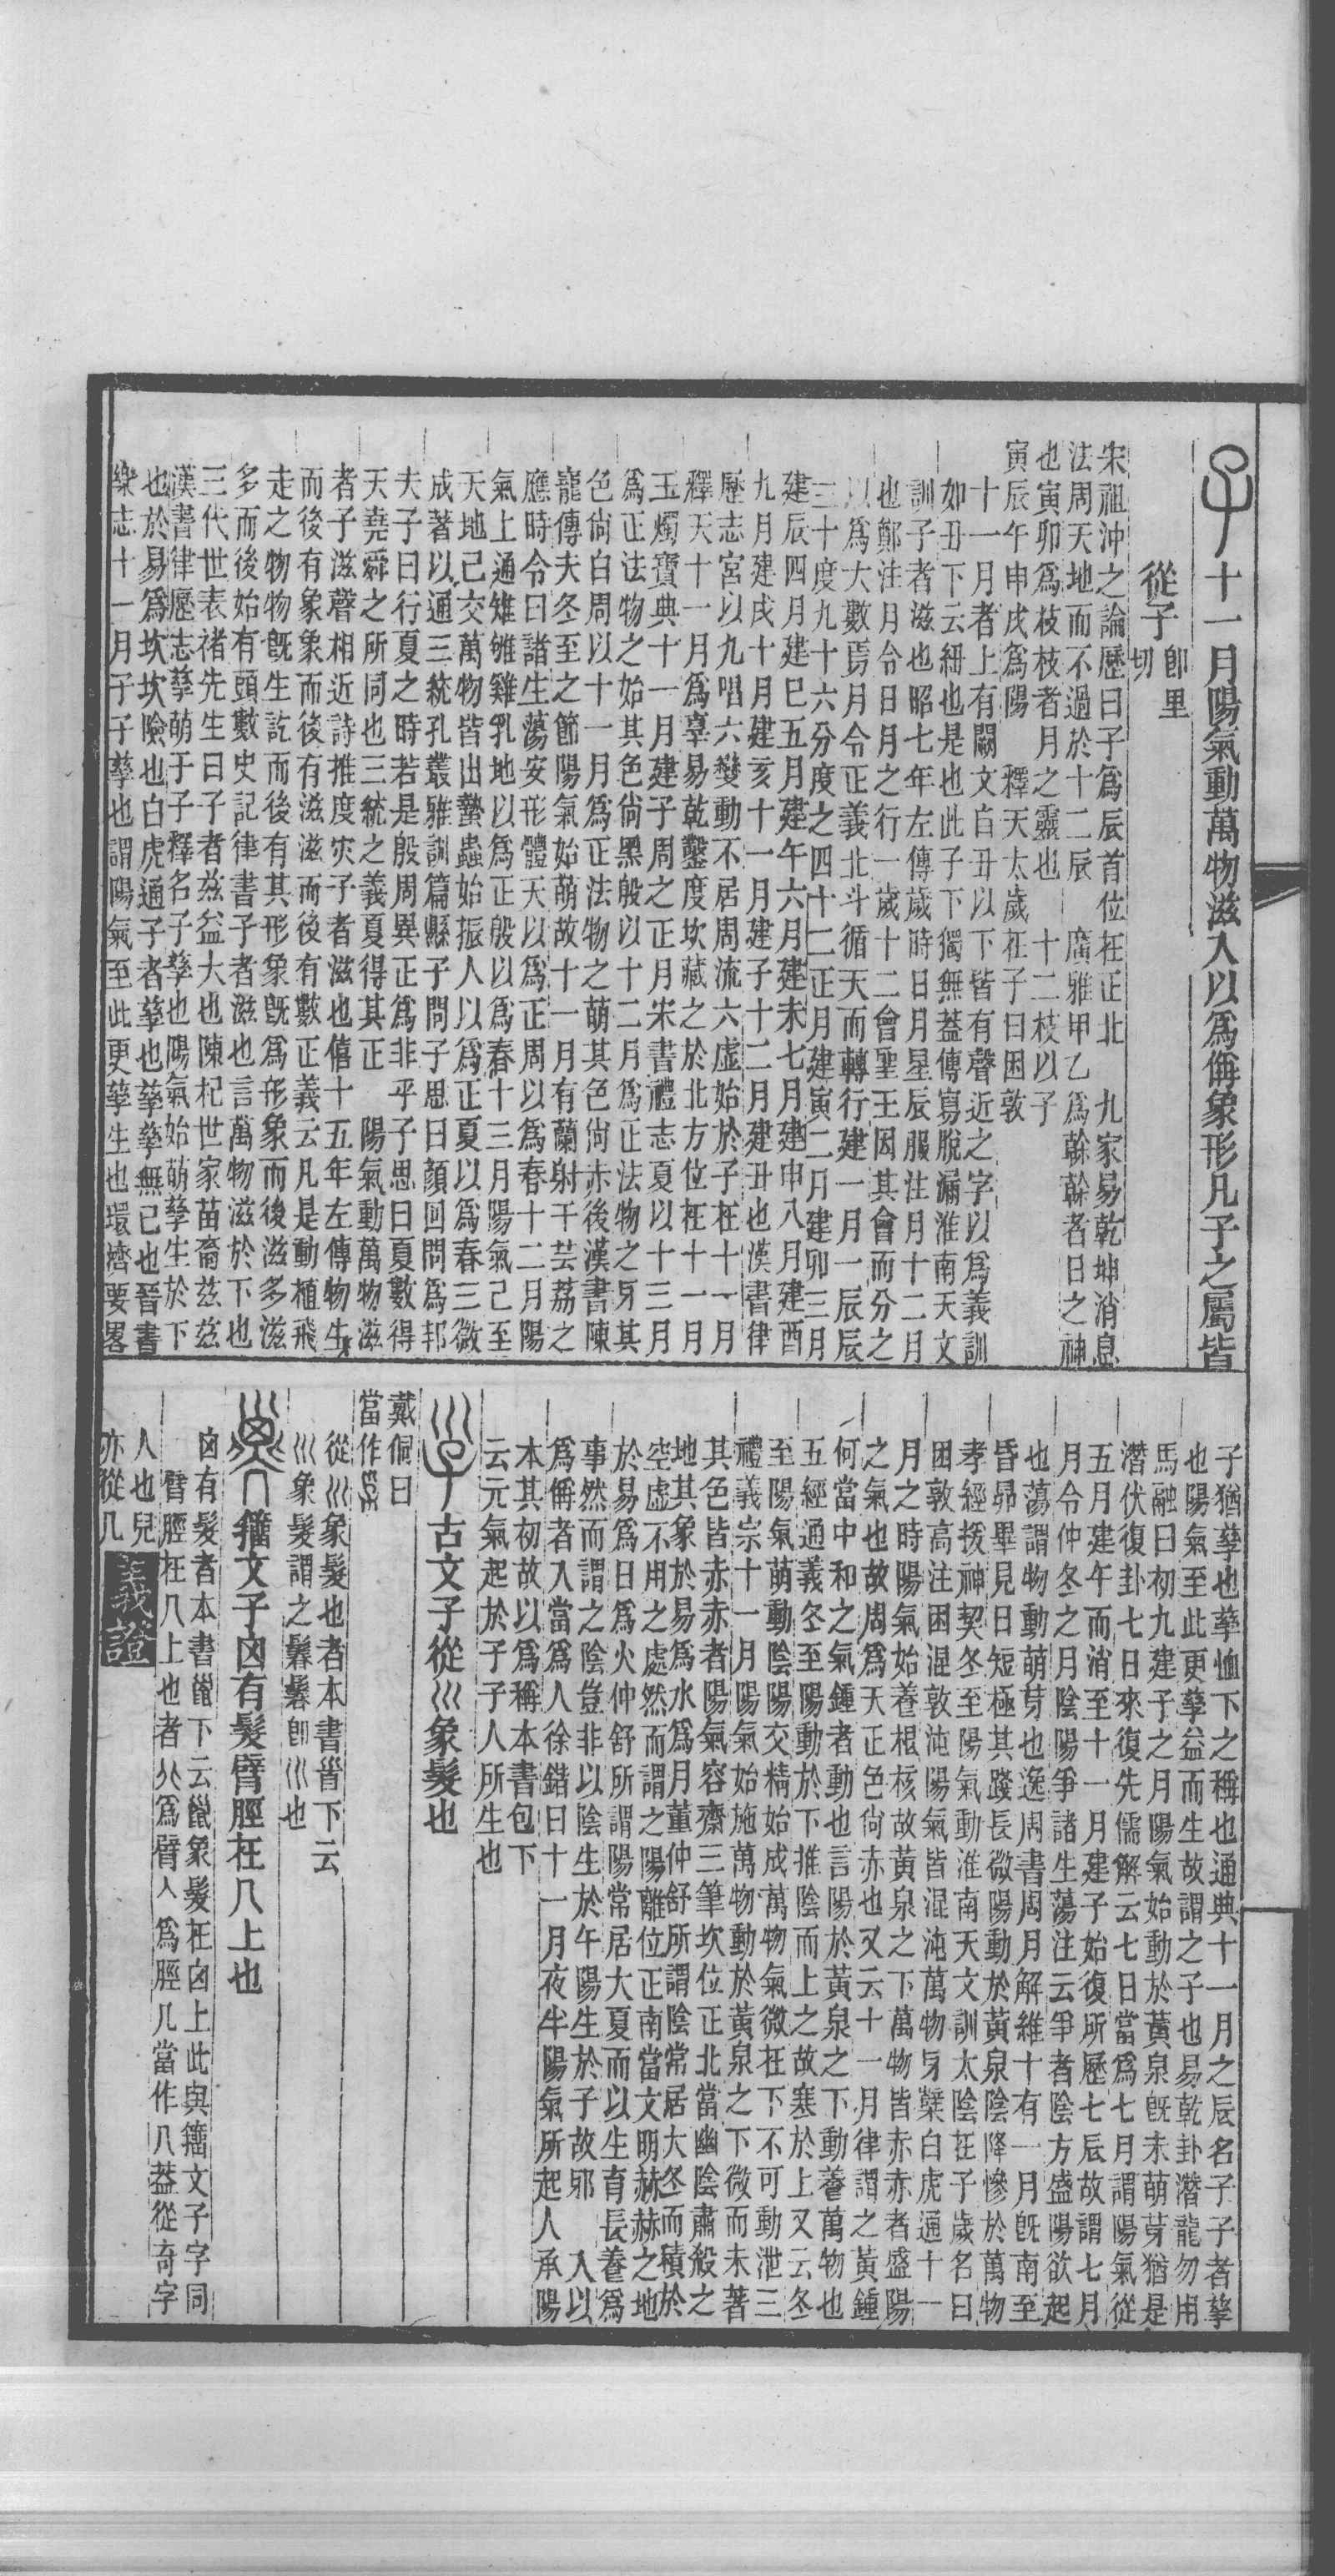 十一月陽氣動萬物滋入以爲偁象形凡子之屬皆
從子即里切
宋祖沖之論歷曰子爲辰首位在正北　九家易乾坤消息
法周天地而不過於十二辰　廣雅甲乙爲榦榦者日之神
也寅卯爲枝枝者月之靈也　十二枝以子
寅辰午申戌爲陽　釋天太歲在子曰困敦
十一月者上有闕文自丑以下皆有聲近之字以爲義訓
如丑下云紐也是也此子下獨無蓋傳寫脫漏淮南天文
訓子者滋也昭七年左傳歲時日月星辰服注月十二月
也鄭注月令日月之行一歲十二會聖王因其會而分之
以爲大數焉月令正義北斗循天而轉行建一月一辰辰
三十度九十六分度之四十二正月建寅二月建卯三月
建辰四月建巳五月建午六月建未七月建申八月建酉
九月建戌十月建亥十一月建子十二月建丑也漢書律
歷志宮以九唱六變動不居周流六虛始於子在十一月
釋天十一月爲辜易乾鑿度坎藏之於北方位在十一月
玉燭寶典十一月建子周之正月宋書禮志夏以十三月
爲正法物之始其色尙黑殷以十二月爲正法物之牙其
色尙白周以十一月爲正法物之萌其色尙赤後漢書陳
寵傳夫冬至之節陽氣始萌故十一月有蘭射干芸荔之
應時令曰諸生蕩安形體天以爲正周以爲春十二月陽
氣上通雉雊雞乳地以爲正殷以爲春十三月陽氣已至
天地已交萬物皆出蟄蟲始振人以爲正夏以爲春三微
成著以通三統孔叢雜訓篇縣子問子思曰顏回問爲邦
夫子曰行夏之時若是殷周異正爲非乎子思曰夏數得
天堯舜之所同也三統之義夏得其正　陽氣動萬物滋
者子滋聲相近詩推度災子者滋也僖十五年左傳物生
而後有象象而後有滋滋而後有數正義云凡是動植飛
走之物物旣生訖而後有其形象旣爲形象而後滋多滋
多而後始有頭數史記律書子者滋也言萬物滋於下也
三代世表褚先生曰子者兹兹益大也陳杞世家苗裔兹兹
漢書律歷志孳萌于子釋名子孳也陽氣始萌孳生於下
也於易爲坎坎險也白虎通子者孳也孳孳無已也晉書
樂志十一月子子孳也謂陽氣至此更孳生也環濟要畧
子猶孳也孳恤下之稱也通典十一月之辰名子子者孳
也陽氣至此更孳益而生故謂之子也易乾卦潛龍勿用
馬融曰初九建子之月陽氣始動於黃泉旣未萌芽猶是
潛伏復卦七日來復先儒解云七日當爲七月謂陽氣從
五月建午而消至十一月建子始復所歷七辰故謂七月
月令仲冬之月陰陽爭諸生蕩注云爭者陰方盛陽欲起
也蕩謂物動萌芽也逸周書周月解維十有一月旣南至
昏昴畢見日短極其踐長微陽動於黃泉陰降慘於萬物
孝經援神契冬至陽氣動淮南天文訓太陰在子歲名曰
困敦高注困混敦沌陽氣皆混沌萬物牙櫱白虎通十一
月之時陽氣始養根核故黃泉之下萬物皆赤赤者盛陽
之氣也故周爲天正色尙赤也又云十一月律謂之黃鍾
何當中和之氣鍾者動也言陽於黃泉之下動養萬物也
五經通義冬至陽動於下推陰而上之故塞於上又云冬
至陽氣萌動陰陽交精始成萬物氣微在下不可動泄三
禮義宗十一月陽氣始施萬物動於黃泉之下微而未著
其色皆赤赤者陽氣容齋三筆坎位正北當幽陰肅殺之
地其象於易爲水爲月董仲舒所謂陰常居大冬而積於
空虛不用之處然而謂之陽離位正南當文明赫赫之地
於易爲日爲火仲舒所謂陽常居大夏而以生育長養爲
事然而謂之陰豈非以陰生於午陽生於子故邪　入以
爲偁者入當爲人徐鍇曰十一月夜半陽氣所起人承陽
本其初故以爲稱本書包下
云元氣起於子子人所生也
古文子從巛象髮也
戴侗曰
當作
從巛象髮也者本書𦣻下云
巛象髮謂之鬊鬊即巛也
籒文子囟有髮臂脛在几上也
囟有髮者本書巤下云巤象髮在囟上此與籒文子字同
臂脛在几上也者𠆢爲臂人爲脛几當作八葢從奇字
人也兒
亦從几
義證